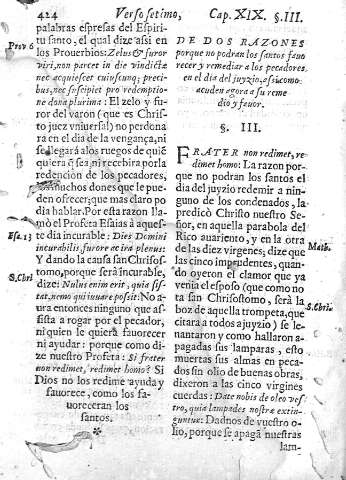 424 Verso setimo, Cap. XIX. §. III.
palabras espresas del Espiri
tu santo, el qual dize assi en
Prov 6 los Prouerbios: Zelus & furor
viri, non parcet in die vindictæ
nec acquiescet cuiuscunq; preci
bus, nec suscipiet pro redemptio
ne dona plurima: El zelo y fu-
ror del varon (que es Chris-
to juez vniuersal) no perdona
ra en el dia de la vengança, ni
se llegará a los ruegos de quiē
quiera q̃ sea, ni recibira por la
redencion de los pecadores,
muchos dones que le pue-
den ofrecer; que mas claro po
dia hablar. Por esta razon lla-
mò el Profeta Esaias à aques-
Esa. 13 te dia incurable: Dies Domini
incurabilis, furore & ira plenus:
Y dando la causa san Chrisos-
tomo, porque serà incurable,
S. Chri dize: Nulus enim erit, quia sis-
tat, nemo qui iuuare posit: No a-
ura entonces ninguno que as-
sista a rogar por el pecador,
ni quien le quiera fauorecer
ni ayudar: porque como di-
ze nuestro Profeta: Si frater
non redimet, redimet homo? Si
Dios no los redime ayuda y
fauorece, como los fa-
uoreceran los
santos.
DE DOS RAZONES
porque no podran los santos fauo
recer y remediar a los pecadores.
en el dia del juyzio, assi como
acuden agora a su reme
dio y fauor.
§. III.
FRATER non redimet, re-
dimet homo: La razon por-
que no podran los santos el
dia del juyzio redemir a nin-
guno de los condenados, la
predicò Christo nuestro Se-
ñor, en aquella parabola del
Rico auariento, y en la otra
Math. de las diez virgines; dize que
las cinco imprudentes, quan-
do oyeron el clamor que ya
venia el esposo (que como no
ta san Chrisostomo, serà la
S. Chris. boz de aquella trompeta, que
citarà a todos a juyzio) se le-
nantaron y como hallaron a-
pagadas sus lamparas, esto
muertas sus almas en peca-
dos sin olio de buenas obras,
dixeron a las cinco virgines
cuerdas: Date nobis de oleo ves-
tro, quia lampades nostræ extin-
guntur: Dadnos de vuestro o-
lio, porque se apagã nuestras
lam-